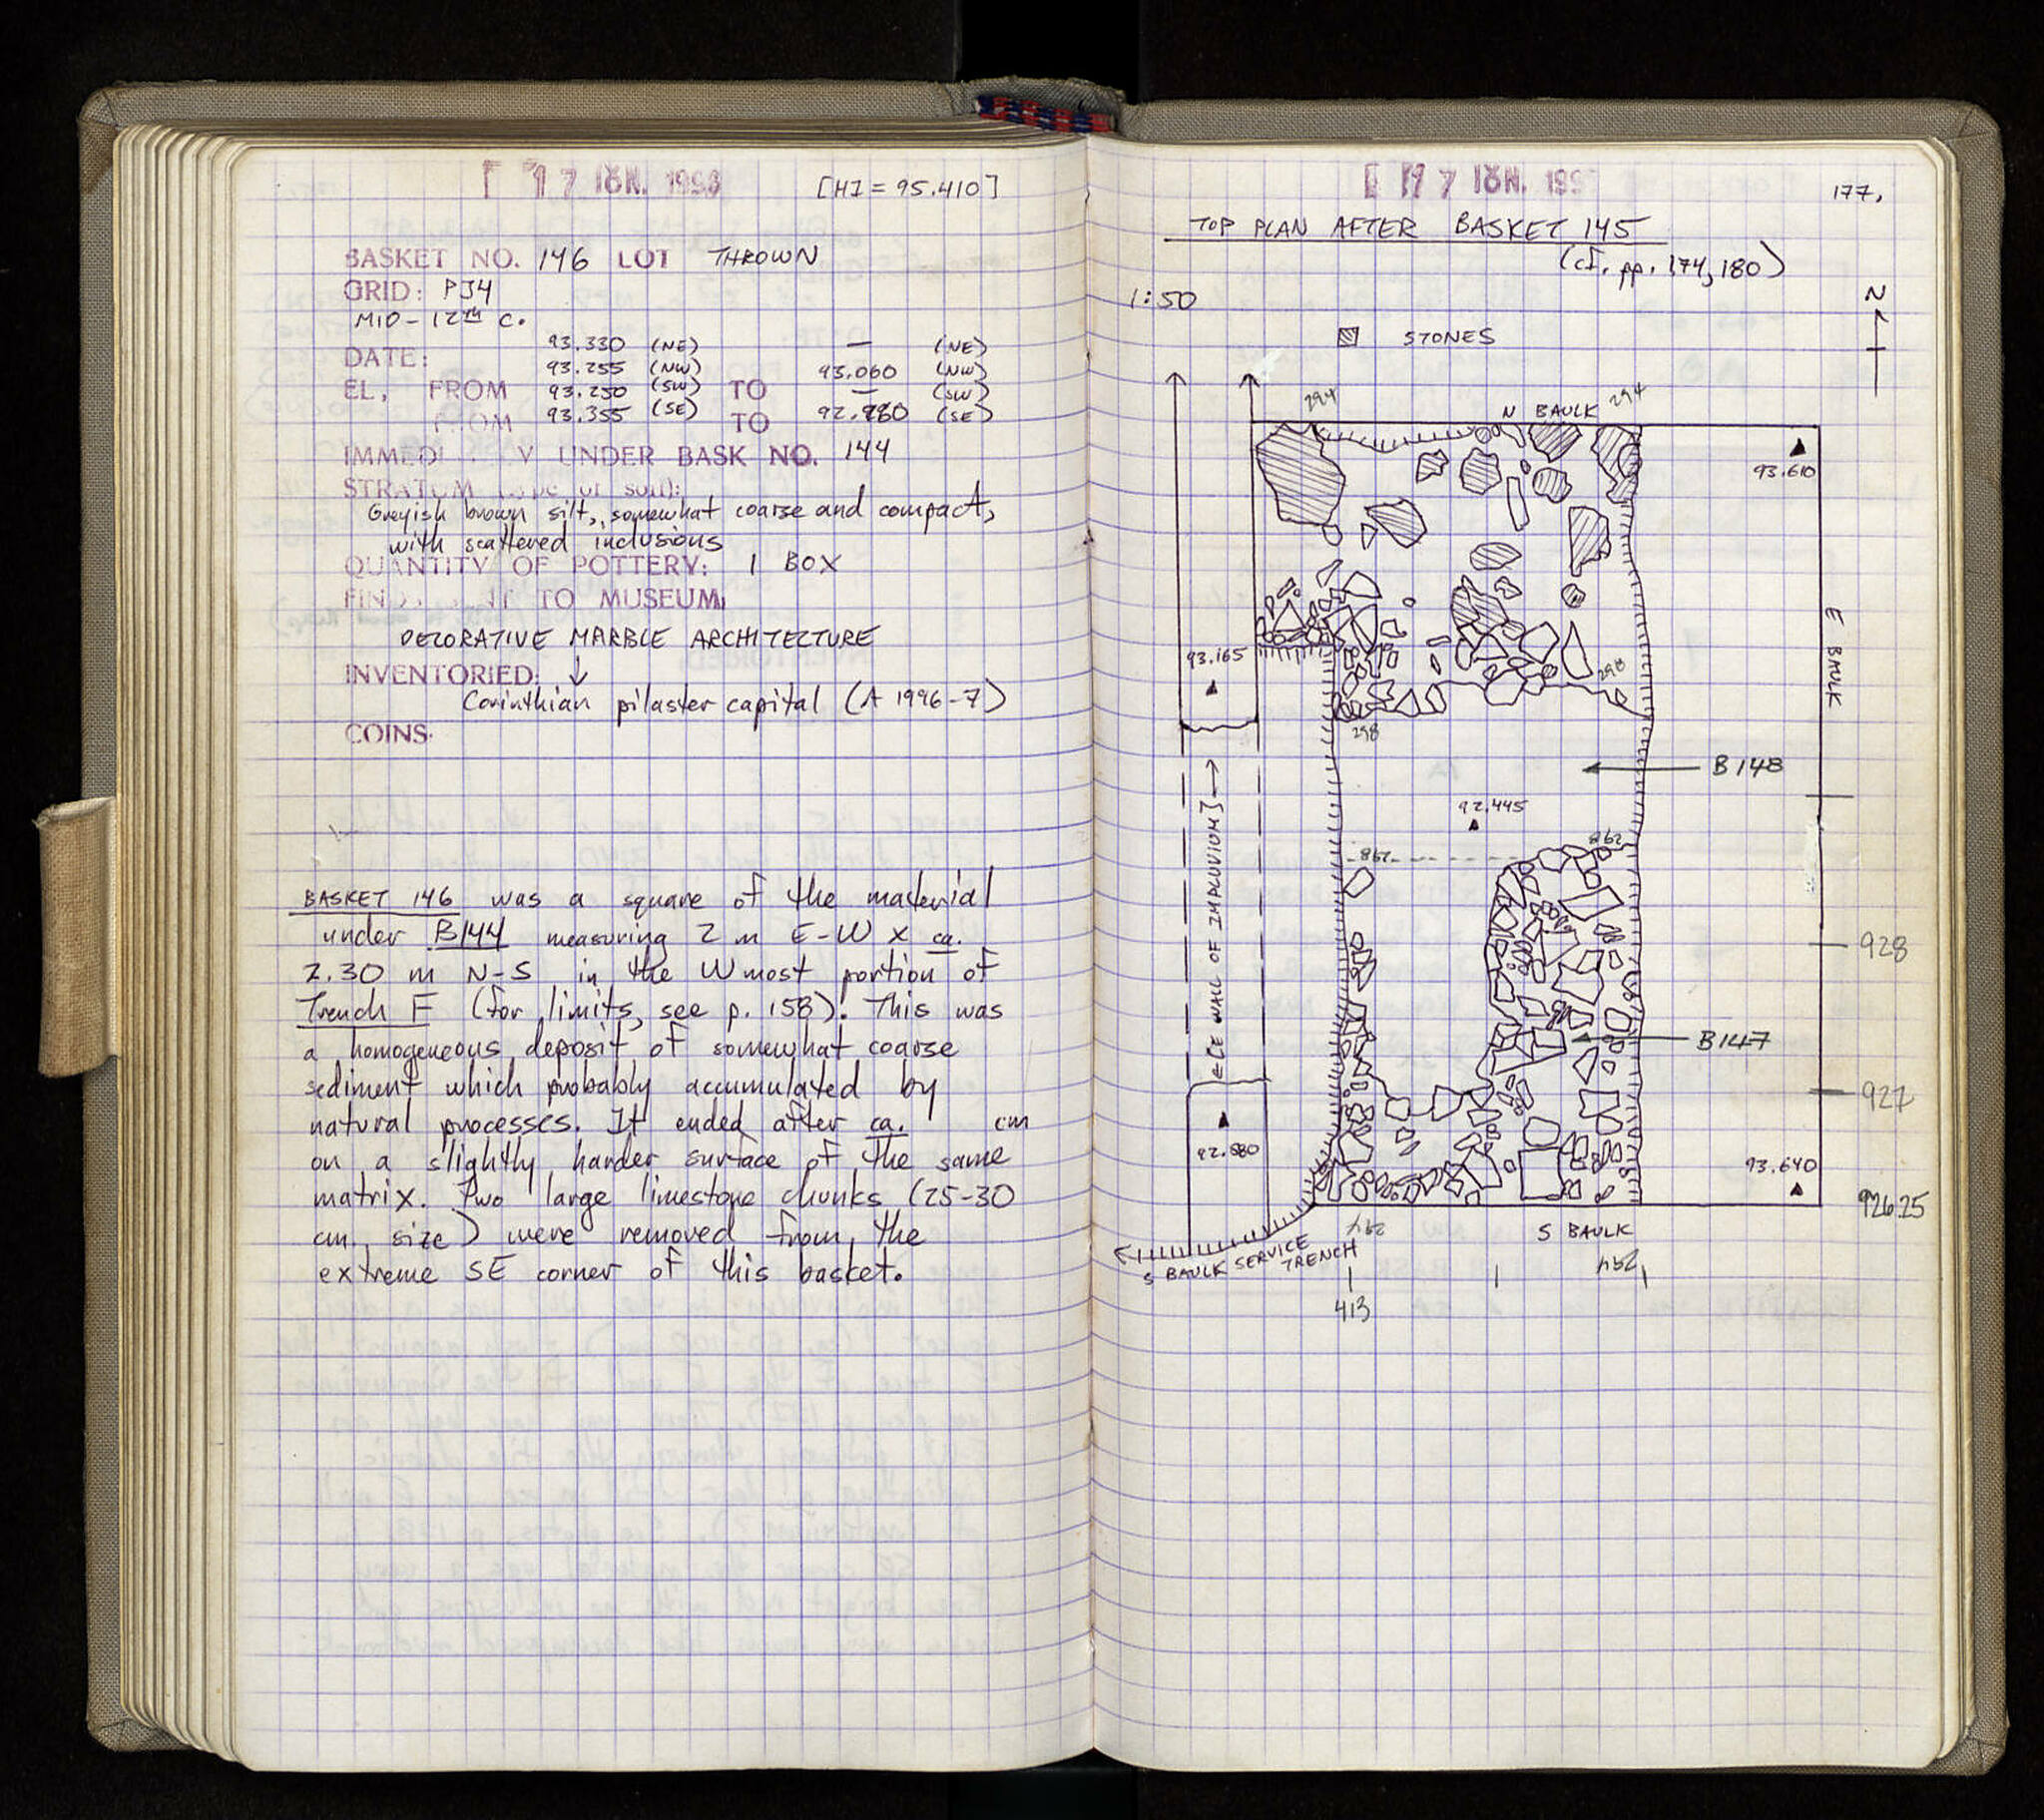 17 IUN. 1996
[HI = 95.410]
BASKET NO. 146 LOT THROWN
GRID: PJ4
MID-12th C.
DATE:
93.330 (NE) — (NE)
93.255 (NW) 93.060 (NW)
EL, FROM 93.250 (SW) TO — (SW)
FROM 93.355 (SE) TO (SE)
UNDER BASK NO. 144
STRATUM (type of soil):
Greyish brown silt, somewhat coarse and compact,
with scattered inclusions
QUANTITY OF POTTERY: 1 BOX
TO MUSEUM:
DECORATIVE MARBLE ARCHITECTURE
INVENTORIED: ↓
Corinthian pilaster capital (A 1996-7)
COINS:
BASKET 146 was a square of the material
under B144 measuring 2 m E-W x ca.
2.30 m N-S in the Wmost portion of
Trench F (for limits, see p. 158). This was
a homogeneous deposit of somewhat coarse
sediment which probably accumulated by
natural processes. It ended after ca. cm
on a slightly harder surface of the same
matrix. Two large limestone chunks (25-30
cm. size) were removed from the
extreme SE corner of this basket.
17 IUN. 199
177.
TOP PLAN AFTER BASKET 145
(cf. pp. 174, 180)
1:50
N
STONES
294
N BAULK
294
93.610
E BAULK
93.165
298
298
B148
92.445
862
862
[E WALL OF IMPLUVIUM]
928
B147
927
92.880
93.640
926.25
294
S BAULK
294
S BAULK SERVICE TRENCH
413